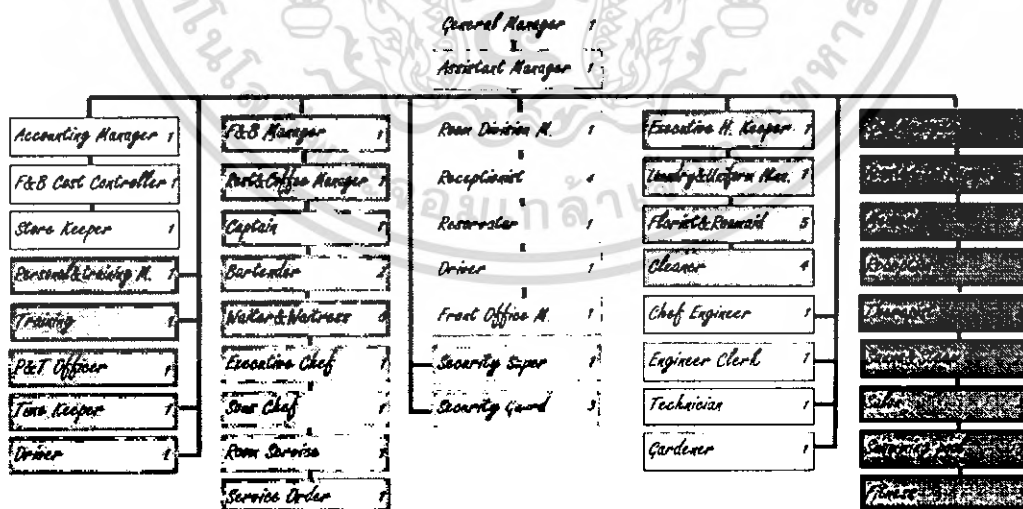 General Manager 1
Assistant Manager 1
Accounting Manager 1
F&B Cost Controller 1
Store Keeper 1
Personal&training M. 1
Training 1
P&T Officer 1
Time Keeper 1
Driver 1
F&B Manager 1
Rest&Coffee Manager 1
Captain 1
Bartender 2
Waiter&Waitress
Executive Chef 1
Sous Chef 1
Room Servise 1
Service Order 1
Room Division M. 1
Receptionist 4
Reservater 1
Driver 1
Front Office M. 1
Security Super 1
Security Guard 3
Executive H. Keeper 1
Laundry&Uniform Man. 1
Florist&Roomaid 5
Cleaner 4
Chef Engineer 1
Engineer Clerk 1
Technician 1
Gardener 1
Reception
Therapist
Salon
Swimming pool
Fitness